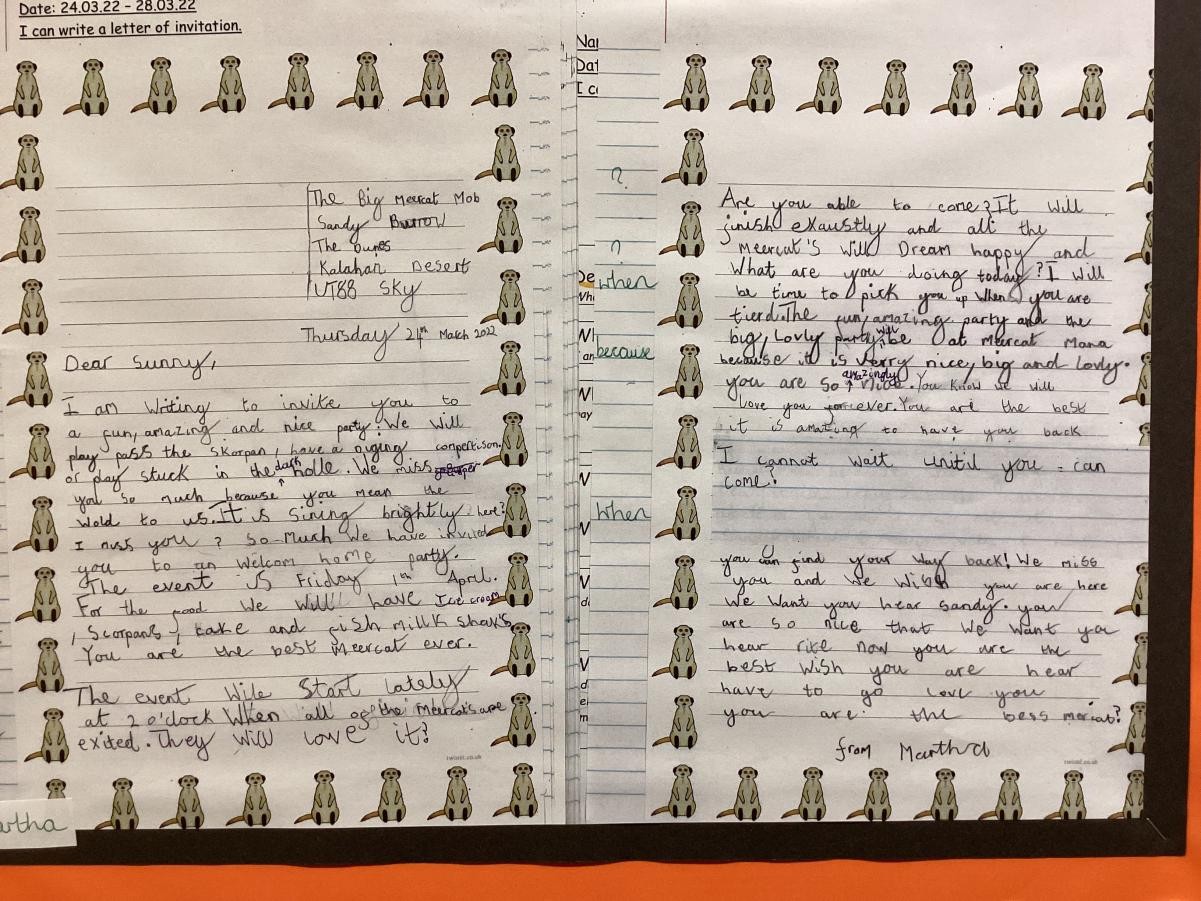 Date: 24.03.22 - 28.03.22
I can write a letter of invitation.
The Big Meercat Mob
Sandy Burrow
The Dunes
Kalahari Desert
UT88 SKY
Thursday 24th March 2022
Dear Sunny,
I am writing to invite you to
a fun, amazing and nice party! We Will
play pass the skorpan, have a diging compertison.
or play stuck in the dark holle. We miss
you so much because you mean the
wold to us. It is Sining brightly here?
I miss you? So much we have invited
you to an Welcom home party.
The event is Friday 1th April.
For the food We Will have Ice cream
, Scorpans, cake and fish millk shaks
You are the best Meercat ever.
The event Wile Start lately
at 2 o'clock When all of the Meercat's are
exited. They will love it?
artha
Nar
Dat
I ca
?
?
De
Whi
when
because
When
Are you able to come? It will
finish exaustly and all the
Meercat's will Dream happy and
What are you doing today? I will
be time to pick you up When you are
tierd. The fun, amazing party and the
big, Lovly party will be at Meercat Mana
because it is verry nice, big and Lovly.
you are so amazingly nice. You know we will
Love you forever. You are the best
it is amazing to have you back
I cannot wait unitil you can
come!
you can find your way back! We miss
you and we wish you are here
We Want you hear sandy. you
are so nice that We Want you
hear rite now you are the
best wish you are hear
have to go love you
you are the bess mercat?
from Martha
twinkl.co.uk
twinkl.co.uk